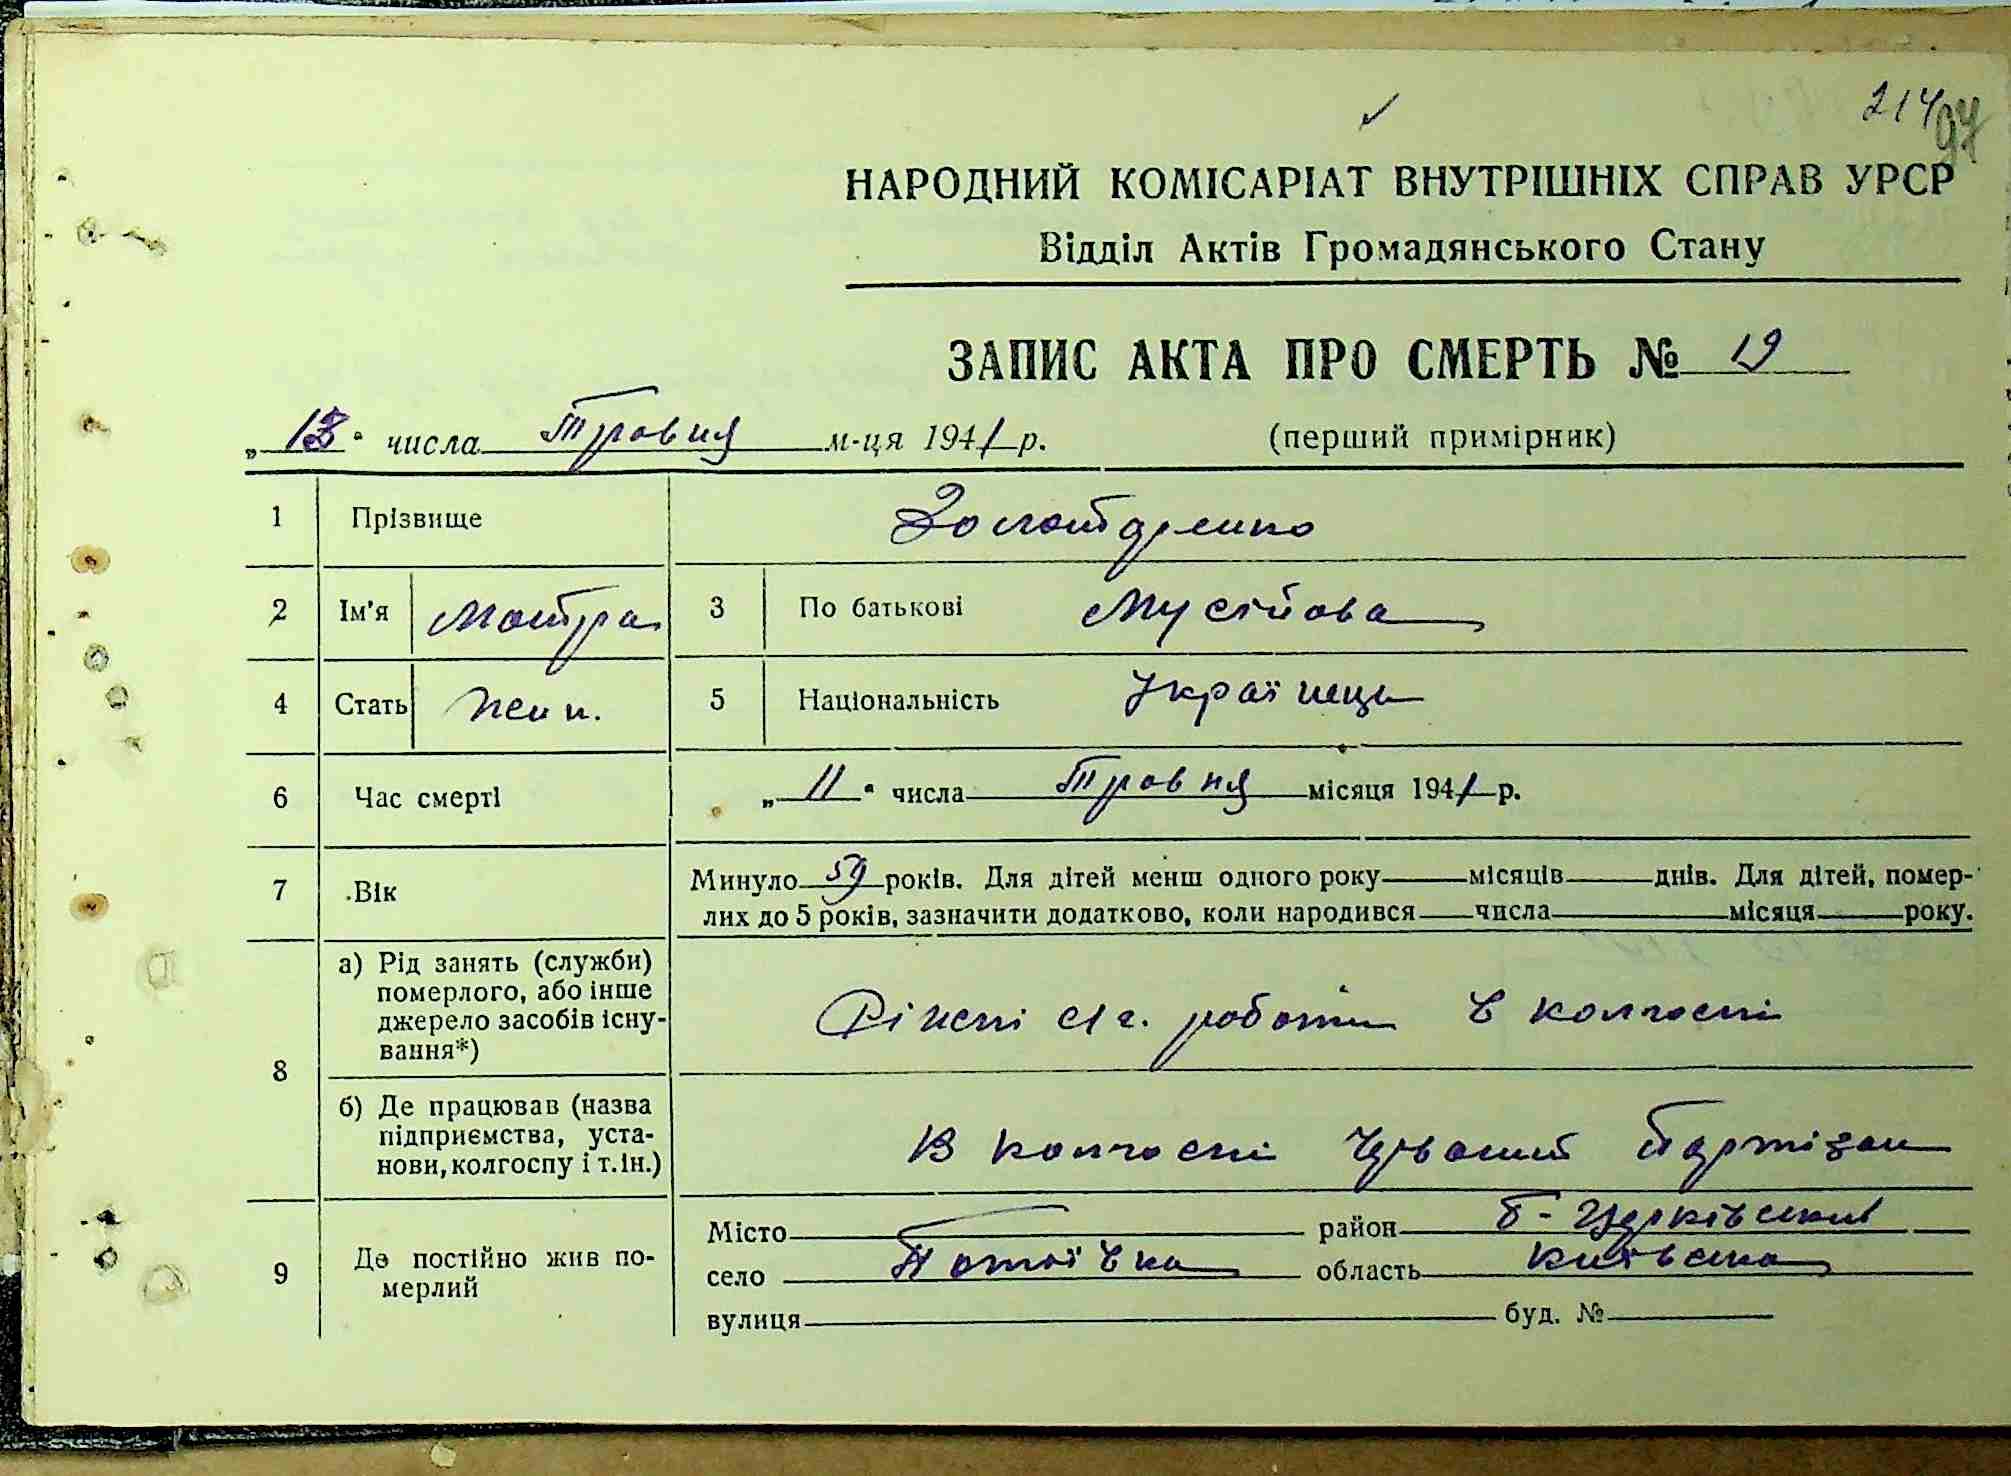 214
97
НАРОДНИЙ КОМІСАРІАТ ВНУТРІШНІХ СПРАВ УРСР
Відділ Актів Громадянського Стану
ЗАПИС АКТА ПРО СМЕРТЬ № 19
„13“ числа Травня м-ця 1941 р. (перший примірник)
1 Прізвище Золотаренко
2 Ім'я Мотря 3 По батькові Мусіївна
4 Стать жен. 5 Національність Українець
6 Час смерті „11“ числа Травня місяця 1941 р.
7 Вік Минуло 59 років. Для дітей менш одного року місяців днів. Для дітей, помер-
лих до 5 років, зазначити додатково, коли народився числа місяця року.
8 а) Рід занять (служби)
померлого, або інше
джерело засобів існу-
вання*)
Ріжні с/г. роботи в колгоспі
б) Де працював (назва
підприємства, уста-
нови, колгоспу і т. ін.)
В колгоспі Червоний Партізан
9 Де постійно жив по-
мерлий
Місто район Б-Церківский
село Потіївка область Київська
вулиця буд. №